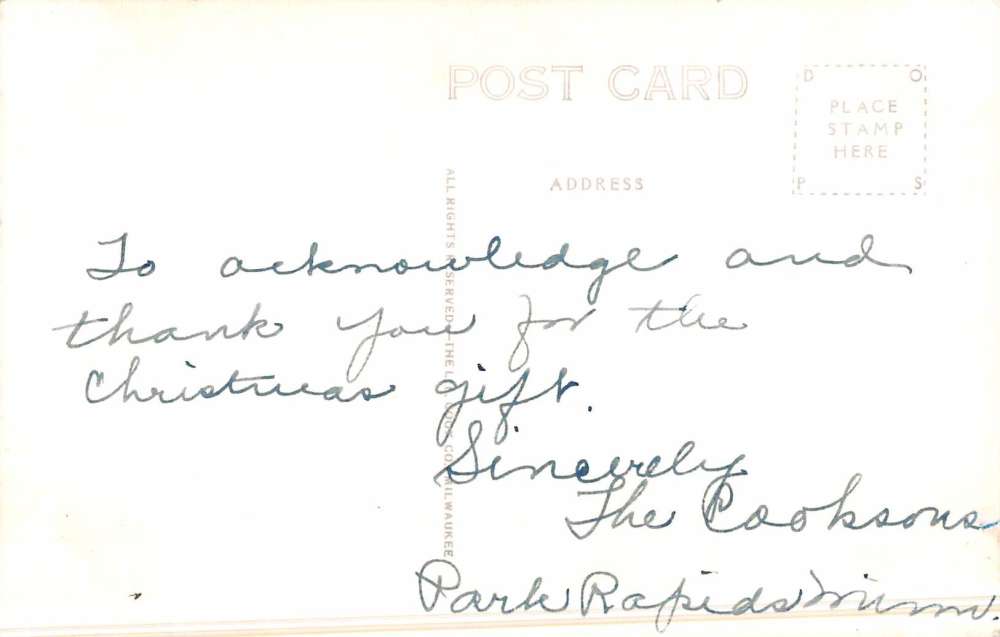 POST CARD
D O
PLACE
STAMP
HERE
P S
ADDRESS
ALL RIGHTS RESERVED—THE L.L. COOK CO. MILWAUKEE
To acknowledge and
thank you for the
Christmas gift.
Sincerely
The Cooksons
Park Rapids Minn.